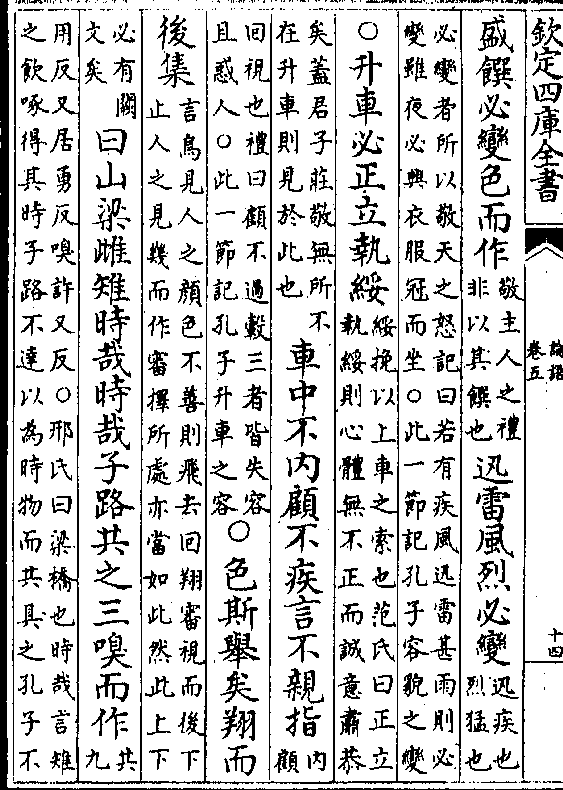 欽定四庫全書
論語
卷五
十四
盛饌必變色而作
敬主人之禮
非以其饌也
迅雷風烈必變
迅疾也
烈猛也
必變者所以敬天之怒記曰若有疾風迅雷甚雨則必
變雖夜必興衣服冠而坐○此一節記孔子容貌之變
○升車必正立執綏
綏挽以上車之索也范氏曰正立
執綏則心體無不正而誠意肅恭
矣蓋君子莊敬無所不
在升車則見於此也
車中不內顧不疾言不親指
內
顧
回視也禮曰顧不過轂三者皆失容
且惑人○此一節記孔子升車之容
○色斯舉矣翔而
後集
言鳥見人之顏色不善則飛去回翔審視而後下
止人之見幾而作審擇所處亦當如此然此上下
必有闕
文矣
曰山梁雌雉時哉時哉子路共之三嗅而作
共
九
用反又居勇反嗅許又反○邢氏曰梁橋也時哉言雉
之飲啄得其時子路不達以為時物而共具之孔子不